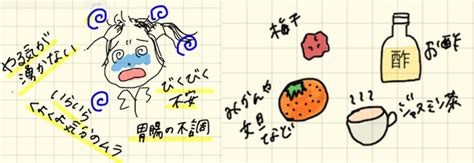 やる気が
湧かない
いらいら
くよくよ気分のムラ
びくびく
不安
胃腸の不調
梅干
酢
お酢
みかんや
文旦
など
ジャスミン茶